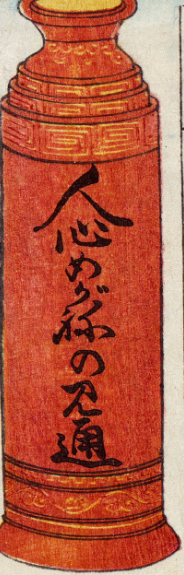 人心めがねの見通